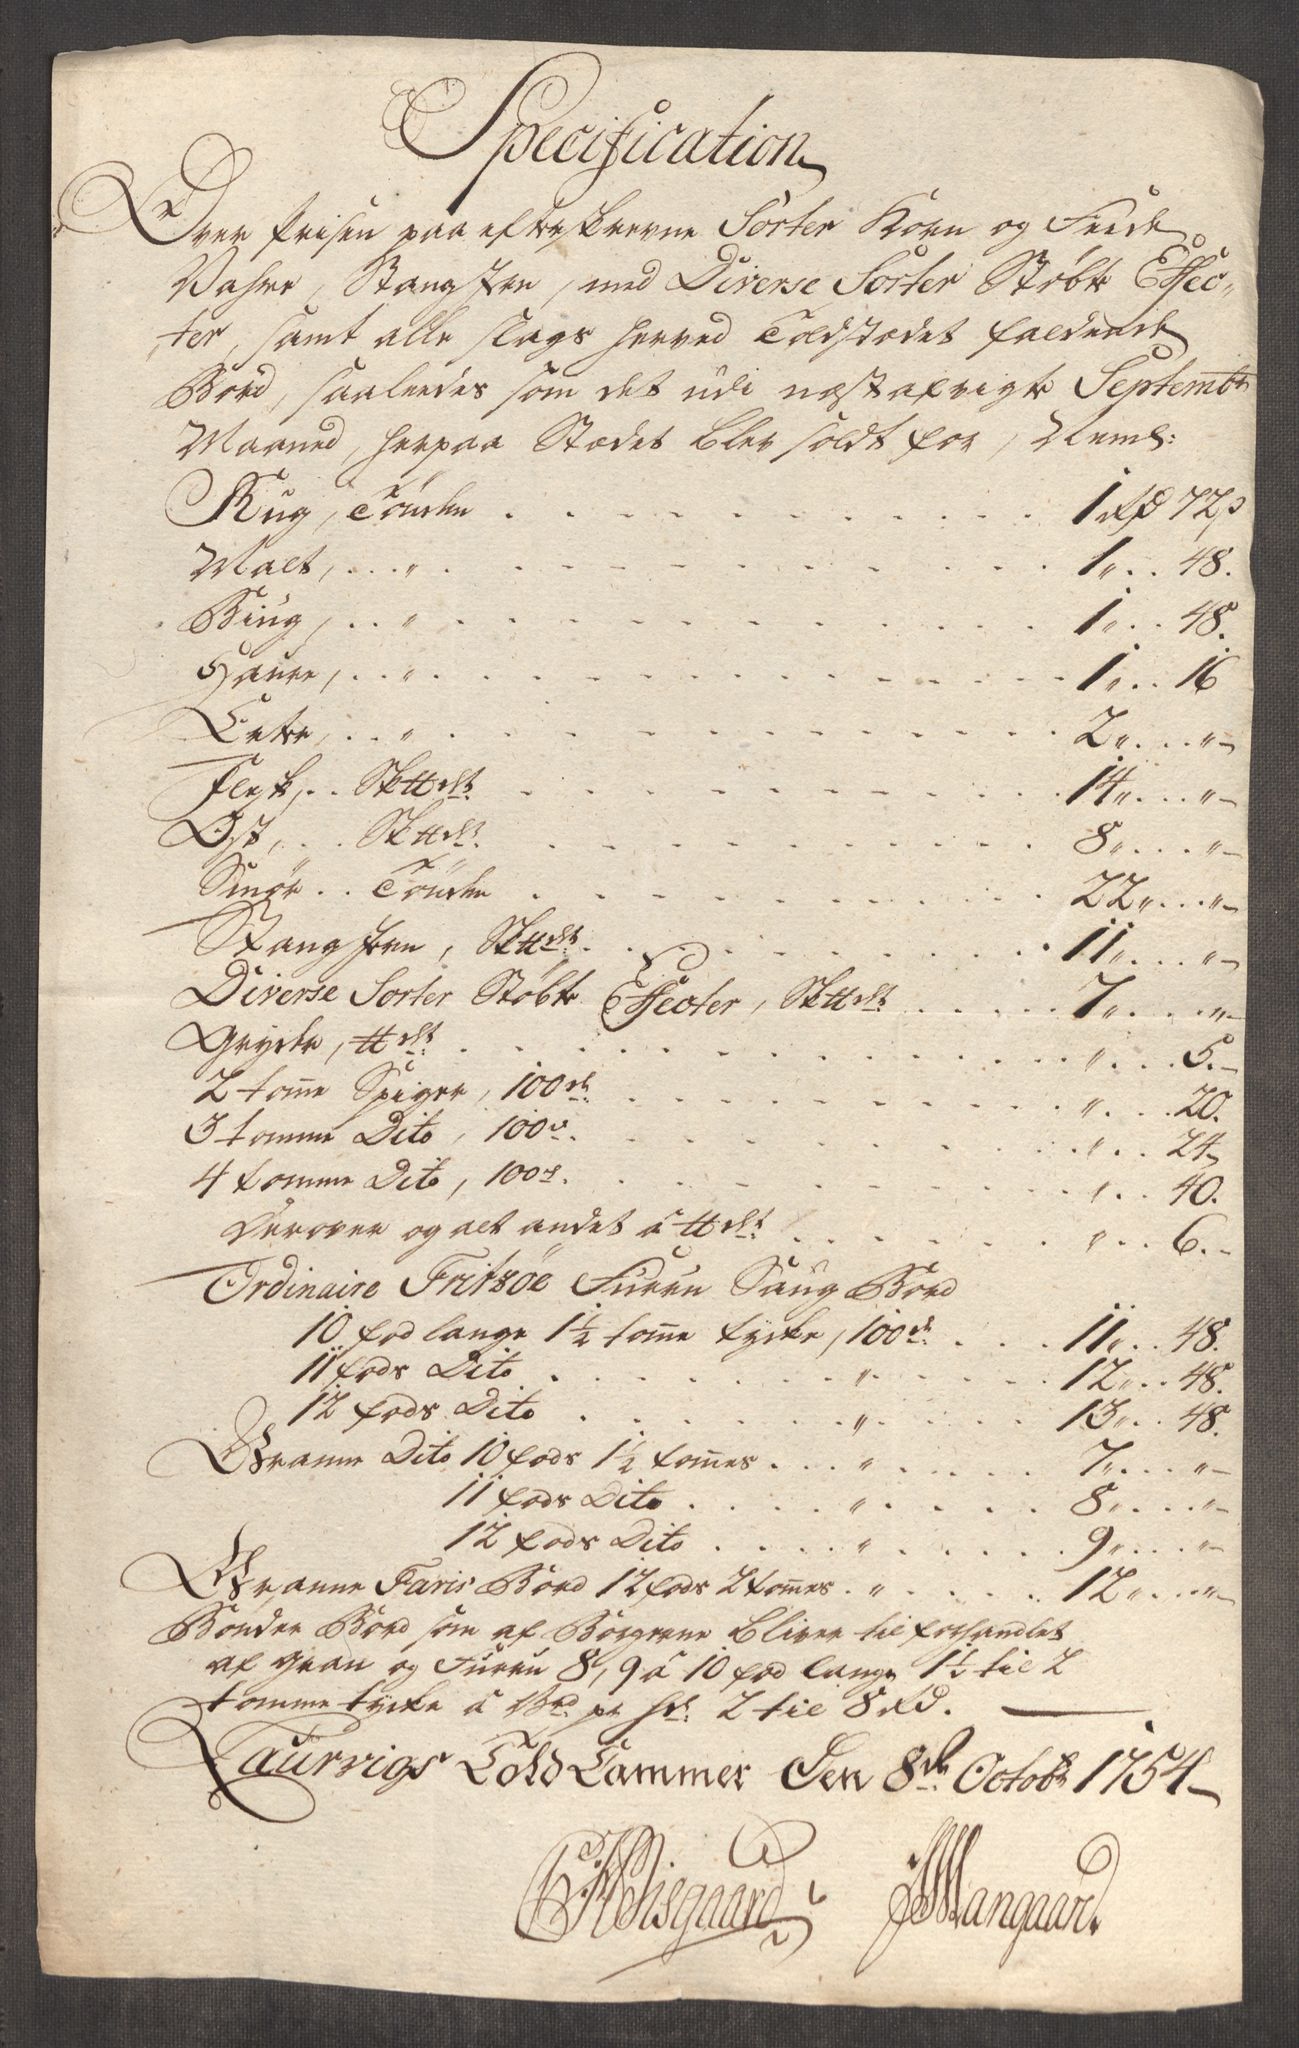 Specification
Over Prisen paa efterskrevne Sorter Korn og Feede
Vahre, Stang Jern, med Diverse Sorter Støbte Effec-
ter, samt alle slags herved Toldstædet faldende
Bord, saaledes som det udi næstafvigte Septembr
Maaned, herpaa Stædet blev soldt for, Neml:
Rug, Tønden . . . 1 rd 72 s
Malt, . . . " . . . 1 " . . 48.
Biug, . . " . . . 1 " . . 48.
Haure, . . " . . . 1 " . . 16
Erter, . . " . . . 2 " . . . "
Flesk, . . Sk℔dt . . . 14 " . . . "
Ost, . . . Sk℔dt . . . 8 " . . . "
Smør . . Tønden . . . 22 " . . . "
Stang Jern, Sk℔dt . . . 11 " . . . "
Diverse Sorter Støbte Effecter, Sk℔dt . . . 7 " . . . "
Gryder, ℔dt . . . " . . . 5.
2 tom̄e Spiger, 100de . . . " . . . 20.
3 tomme Dito, 100de . . . " . . 24
4 tomme Dito, 100de . . . " . . 40.
Derover og alt andet â ℔dt . . . " . . 6.
Ordinaire Fritzøe Furru Saug Bord
10 fod lange 1½ tom̄e tycke, 100de . . . 11 " . . 48.
11 fods Dito . . . " . . . 12 " . . 48.
12 fods Dito . . . " . . . 13 " . . 48.
Granne Dito 10 fods 1½ tom̄es . . . " . . . 7 " . . . "
11 fods Dito . . . " . . . 8 " . . . "
12 fods Dito . . . " . . . 9 " . . . "
Granne Faris Bord 12 fods 2 tom̄es . " . . . 12 " . . . "
Bonder Bord som af Borgerne bliver tilforhandlet
af gran og Furru 8, 9 â 10 fod lange 1½ til 2
tomme tycke â pr Hd: 2 til 8 rd.
Laurvigs Told Cammer Den 8de Octobr 1754
Nisgaard Mangaard.